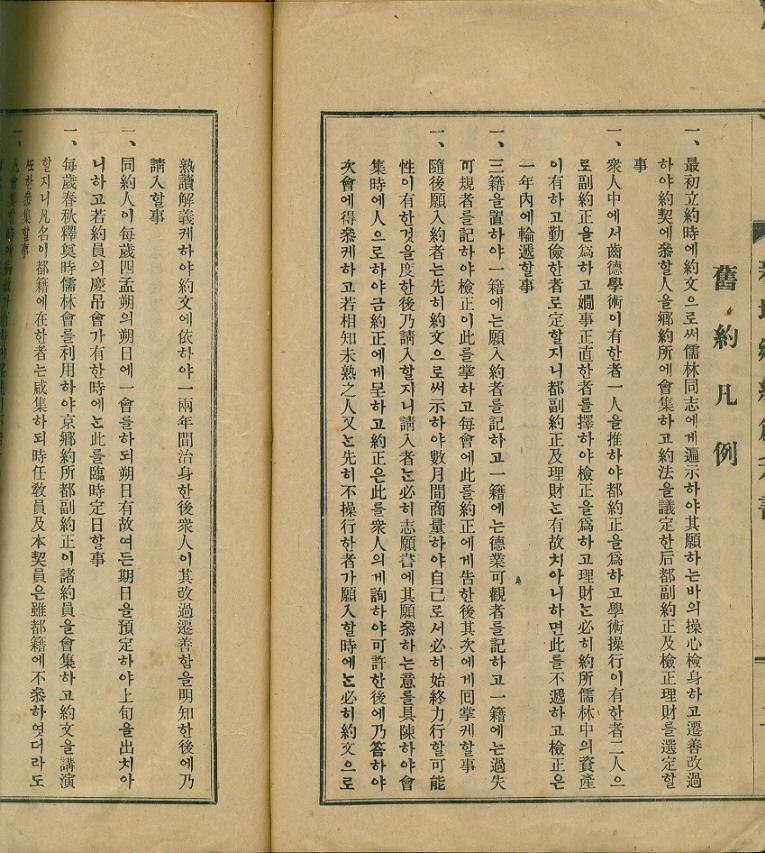 舊約凡例
一、最初立約時에約文으로써儒林同志에게遍示하야其願하는바의操心檢身하고遷善改過
하야約契에參할人을鄕約所에會集하고約法을議定한后都副約正及檢正理財를選定할
事
一、衆人中에서齒德學術이有한者一人을推하야都約正을爲하고學術操行이有한者二人으
로副約正을爲하고嫺事正直한者를擇하야檢正을爲하고理財는必히約所儒林中의資產
이有하고勤儉한者로定할지니都副約正及理財는有故치아니하면此를不遞하고檢正은
一年內에輪遞할事
一、三籍을置하야一籍에는願入約者를記하고一籍에는德業可觀者를記하고一籍에는過失
可規者를記하야檢正이此를掌하고每會에此를約正에게告한後其次에게囘掌케할事
一、隨後願入約者는先히約文으로써示하야數月間商量하야自己로서必히始終力行할可能
性이有한것을度한後乃請入할지니請入者는必히志願書에其願參하는意를具陳하야會
集時에人으로하야금約正에게呈하고約正은此를衆人의게詢하야可許한後에乃答하야
次會에得參케하고若相知未熟之人又는先히不操行한者가願入할時에는必히約文으로
熟讀解義케하야約文에依하야一兩年間治身한後衆人이其改過遷善함을明知한後에乃
請入할事
一、同約人이每歲四孟朔의朔日에一會를하되朔日有故여든期日을預定하야上旬을出치아
니하고若約員의慶吊會가有한時에는此를臨時定日할事
一、每歲春秋釋奠時儒林會를利用하야京鄕約所都副約正이諸約員을會集하고約文을講演
할지니凡名이都籍에在한者는咸集하되時任敎員及本契員은雖都籍에不參하엿더라도